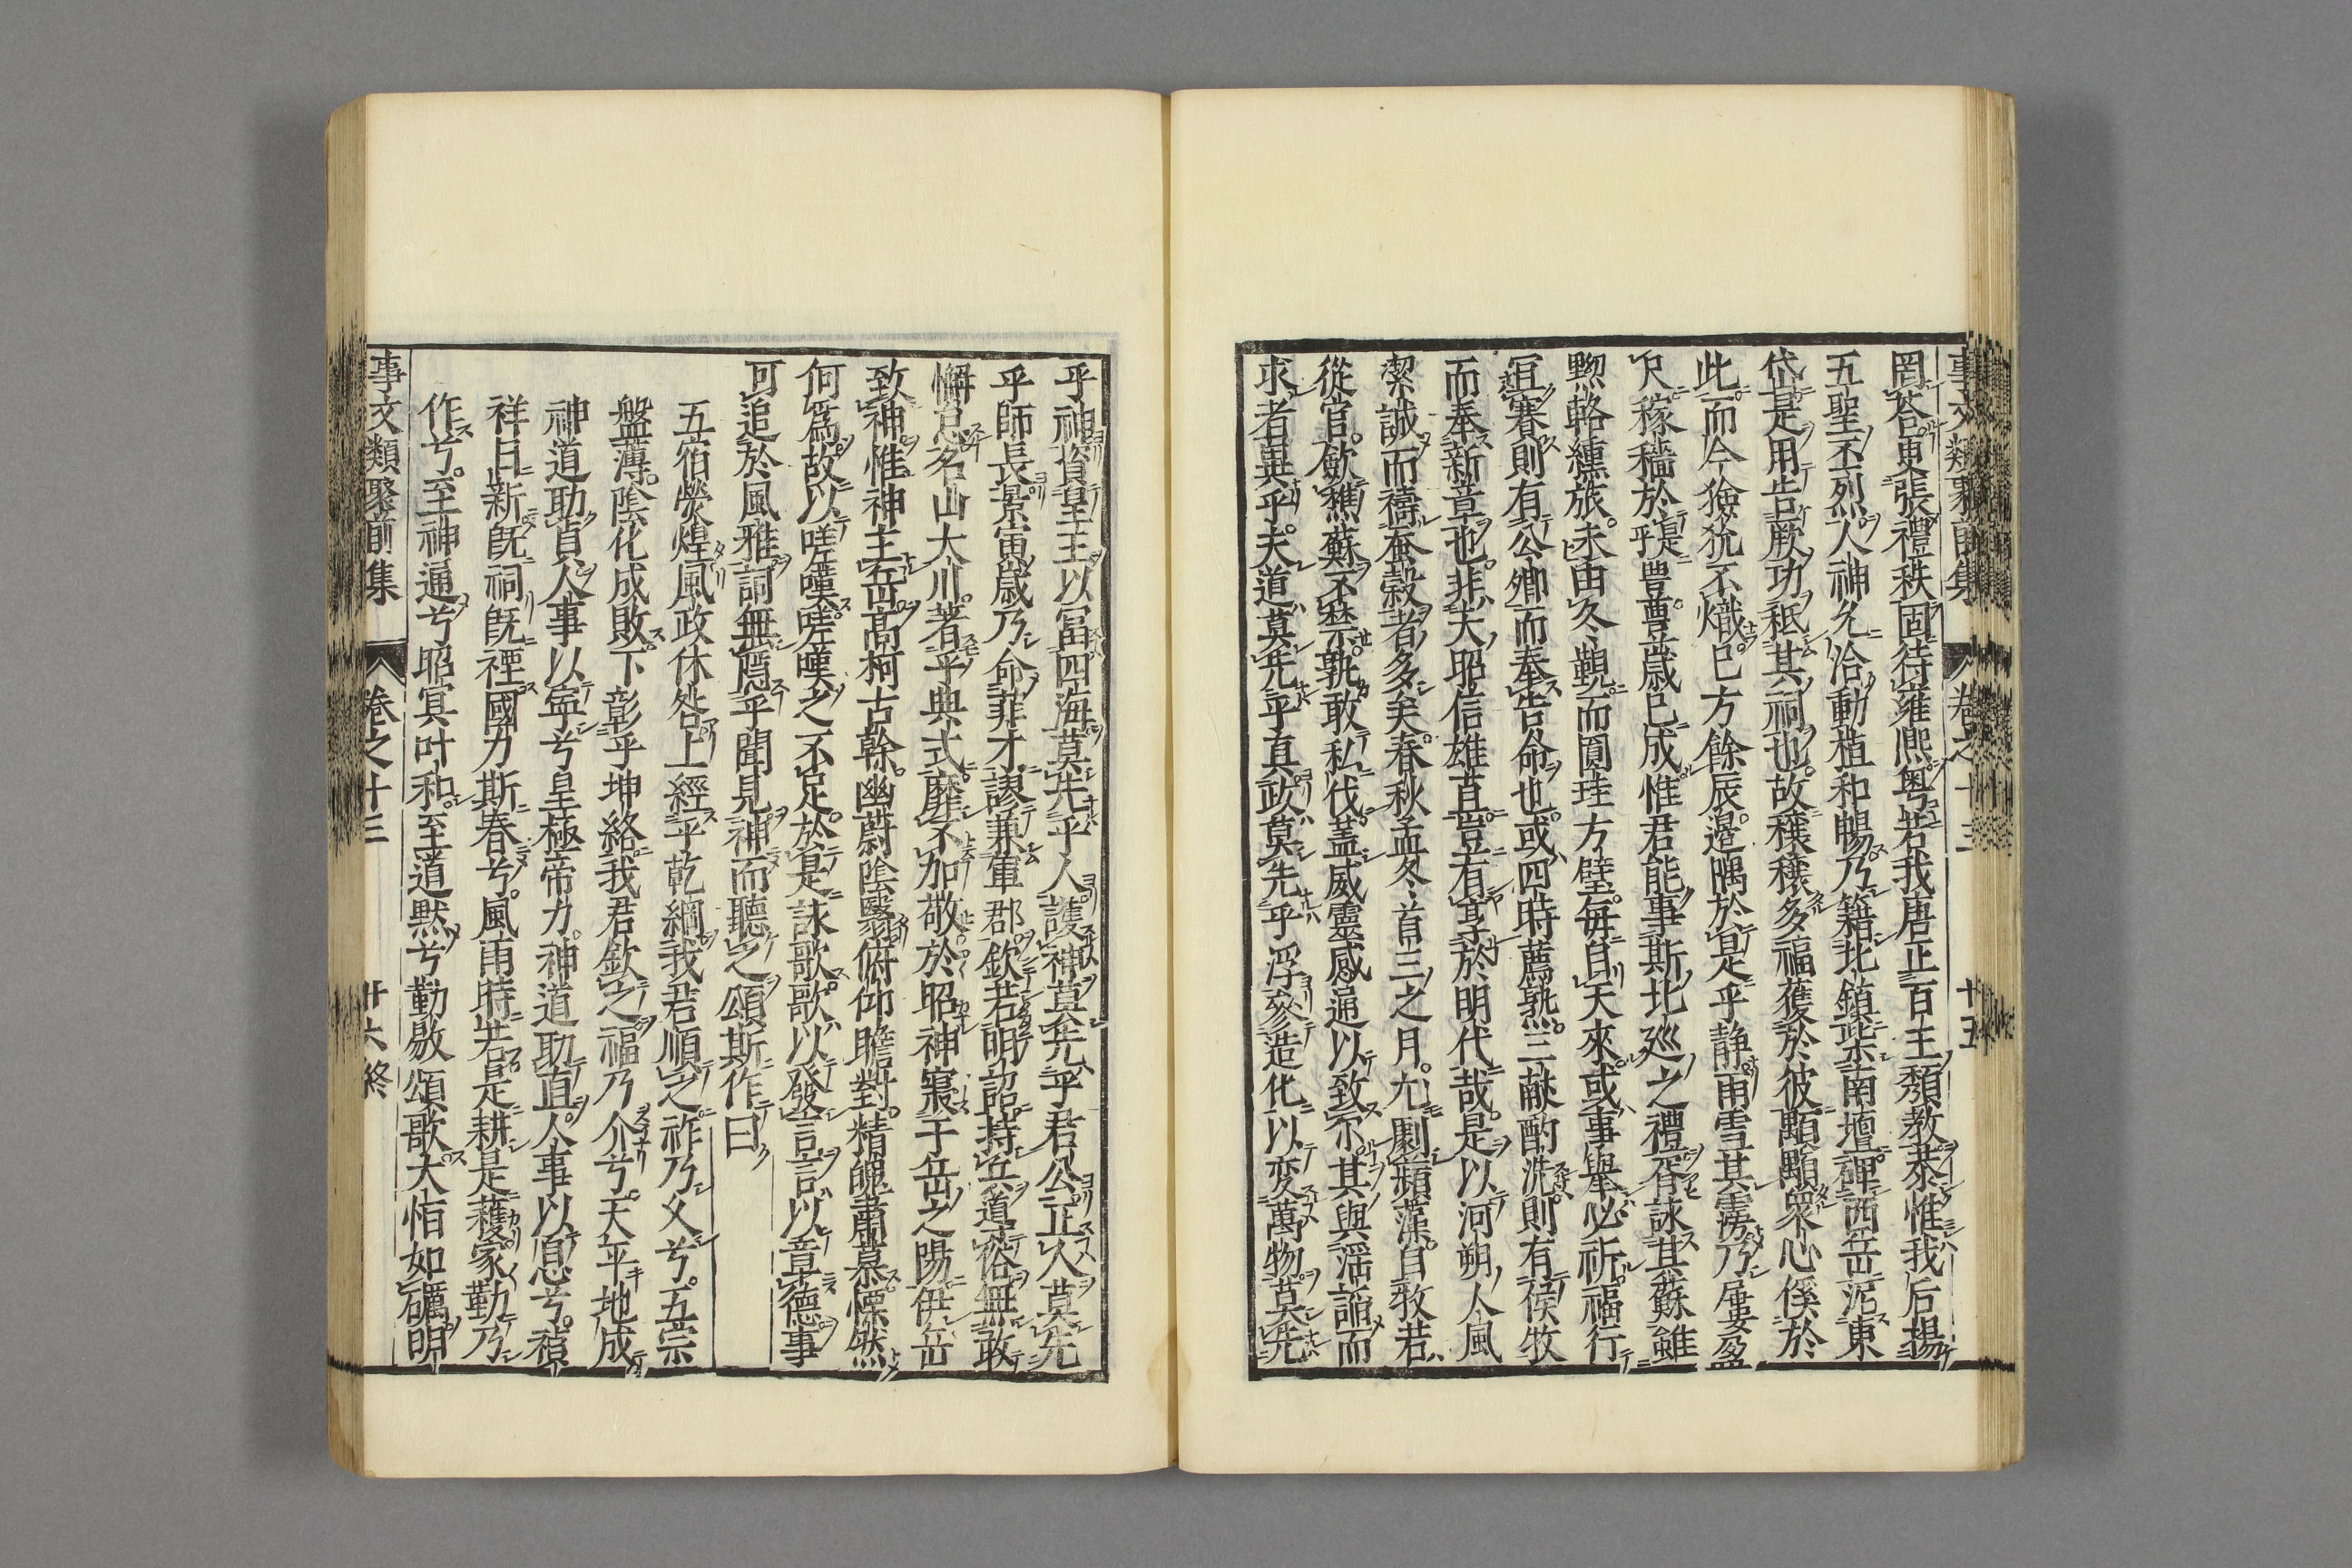 事文類聚前集 卷之十三 十五
罔荅東張禮秩固待雍熙粤若我唐正百王頽教恭惟我后揚
五聖丕烈人神允洽動植和暢乃籍北鎮柴南壇禪西岳泥東
岱是用告厥功秖其祠也故穰穰多福蒦於彼顒顒衆心徯於
此而今獫狁不熾巳方餘辰邊隅於是乎静雨雪其雱乃屢盈
尺稼穡於寔乎豊曹歲巳成惟君能事斯北廵之禮胥詠其蘇雖
黙輅纁旅未由冬覲而圓珪方璧毎自天來或事舉必祈福行
冝賽則有公卿而奉告命也或四時薦熟三獻酌洗則有侯牧
而奉新章也非夫昭信雄苴豈有享於明代哉是以河朔人風
潔誠而禱蚕穀者多矣春秋孟冬首三之月尢劇蘋藻自牧若
從官歛樵蘇不禁孰敢私伐蓋威靈感通以致尓其與滛謟而
求者異乎夫道莫先乎真政莫先乎浮豂造化以变萬物莫先
乎神資皇王以冨四海莫先乎人護神莫先乎君公正人莫先
乎師長景寅歲乃命菲才謬兼軍郡欽若明詔持兵道俗無敢
懈怠名山大川著乎典式靡不加敬於昭神寢于岳之陽伊岳
致神惟神主岳髙柯古榦幽蔚陰翳俯仰瞻對精魄肅慕慄然
何爲故以嗟嘆嗟嘆之不足於是詠歌歌以發言言以章德事
可追於風雅詞無隱乎聞見神而聽之頌斯作曰
五宿熒煌風政休咎上經乎乾綱我君順之祚乃乂兮五宗
盤薄陰化成敗下彰乎坤絡我君欽之福乃介兮天平地成
神道助貞人事以寧兮皇極帝力神道助直人事以息兮禎
祥日新旣祠旣禋國力斯春兮風雨時若是耕是蒦家勤乃
作兮至神通兮昭冥叶和至道黙兮勤敭頌歌大㤙如礪明
事文類聚前集 卷之十三 廿六終